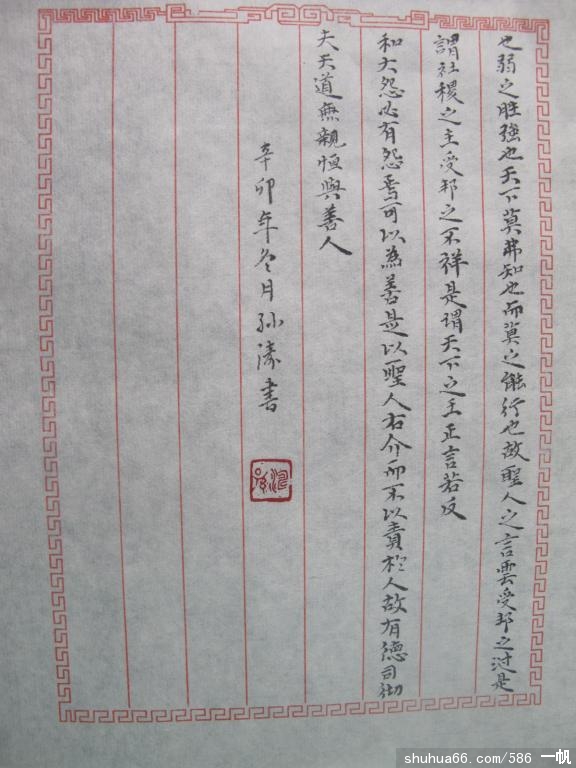 也弱之胜強也天下莫弗知也而莫之能行也故聖人之言雲受邦之过是
謂社稷之主受邦之不祥是謂天下之王正言若反
和大怨必有怨焉可以為善是以聖人右介而不以責於人故有德司彻
夫天道無親恒與善人
辛卯年冬月孙涛書
shuhua66.com/586 一帆